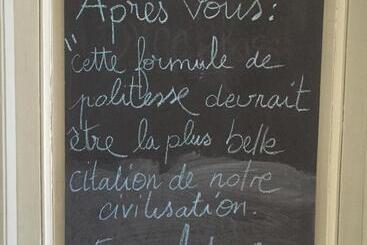 Après Vous:
"cette formule de
politesse devrait
être la plus belle
citation de notre
civilisation.